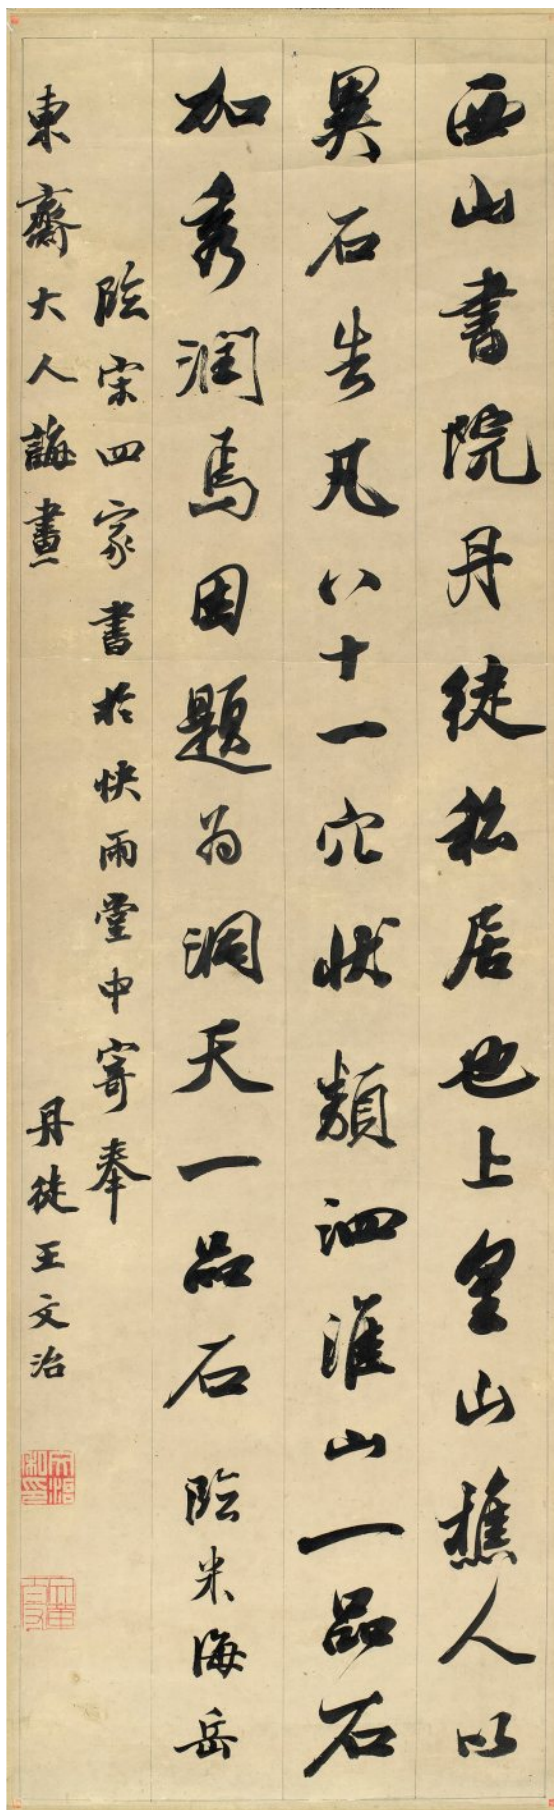 西山書院丹徒私居也上皇山樵人以
異石告凡八十一穴狀類泗淮山一品石
加秀潤焉因題為洞天一品石 臨米海岳
臨宋四家書於快雨堂中寄奉
東齋大人誨畫 丹徒王文治